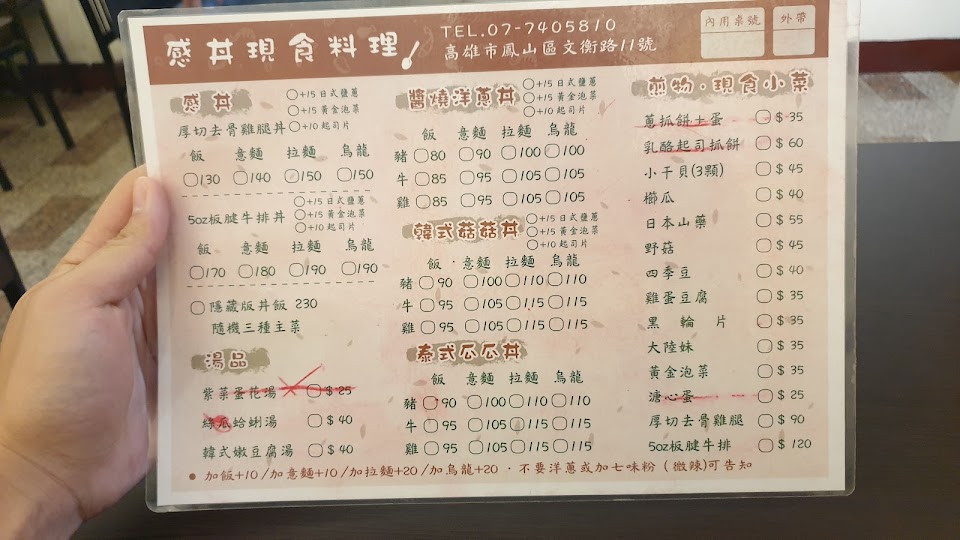 感丼現食料理!
TEL.07-7405810
高雄市鳳山區文衡路11號
內用桌號
外帶
感丼
+15日式鹽蔥
+15黃金泡菜
+10起司片
厚切去骨雞腿丼
飯 意麵 拉麵 烏龍
130 140 150 150
5oz板腱牛排丼
+15日式鹽蔥
+15黃金泡菜
+10起司片
飯 意麵 拉麵 烏龍
170 180 190 190
隱藏版丼飯 230
隨機三種主菜
湯品
紫菜蛋花湯 $25
絲瓜蛤蜊湯 $40
韓式嫩豆腐湯 $40
醬燒洋蔥丼
+15日式鹽蔥
+15黃金泡菜
+10起司片
飯 意麵 拉麵 烏龍
豬 80 90 100 100
牛 85 95 105 105
雞 85 95 105 105
韓式菇菇丼
+15日式鹽蔥
+15黃金泡菜
+10起司片
飯 意麵 拉麵 烏龍
豬 90 100 110 110
牛 95 105 115 115
雞 95 105 115 115
泰式瓜瓜丼
飯 意麵 拉麵 烏龍
豬 90 100 110 110
牛 95 105 115 115
雞 95 105 115 115
煎物·現食小菜
蔥抓餅+蛋 $35
乳酪起司抓餅 $60
小干貝(3顆) $45
櫛瓜 $40
日本山藥 $55
野菇 $45
四季豆 $40
雞蛋豆腐 $35
黑輪片 $35
大陸妹 $35
黃金泡菜 $35
溏心蛋 $25
厚切去骨雞腿 $90
5oz板腱牛排 $120
●加飯+10/加意麵+10/加拉麵+20/加烏龍+20·不要洋蔥或加七味粉(微辣)可告知